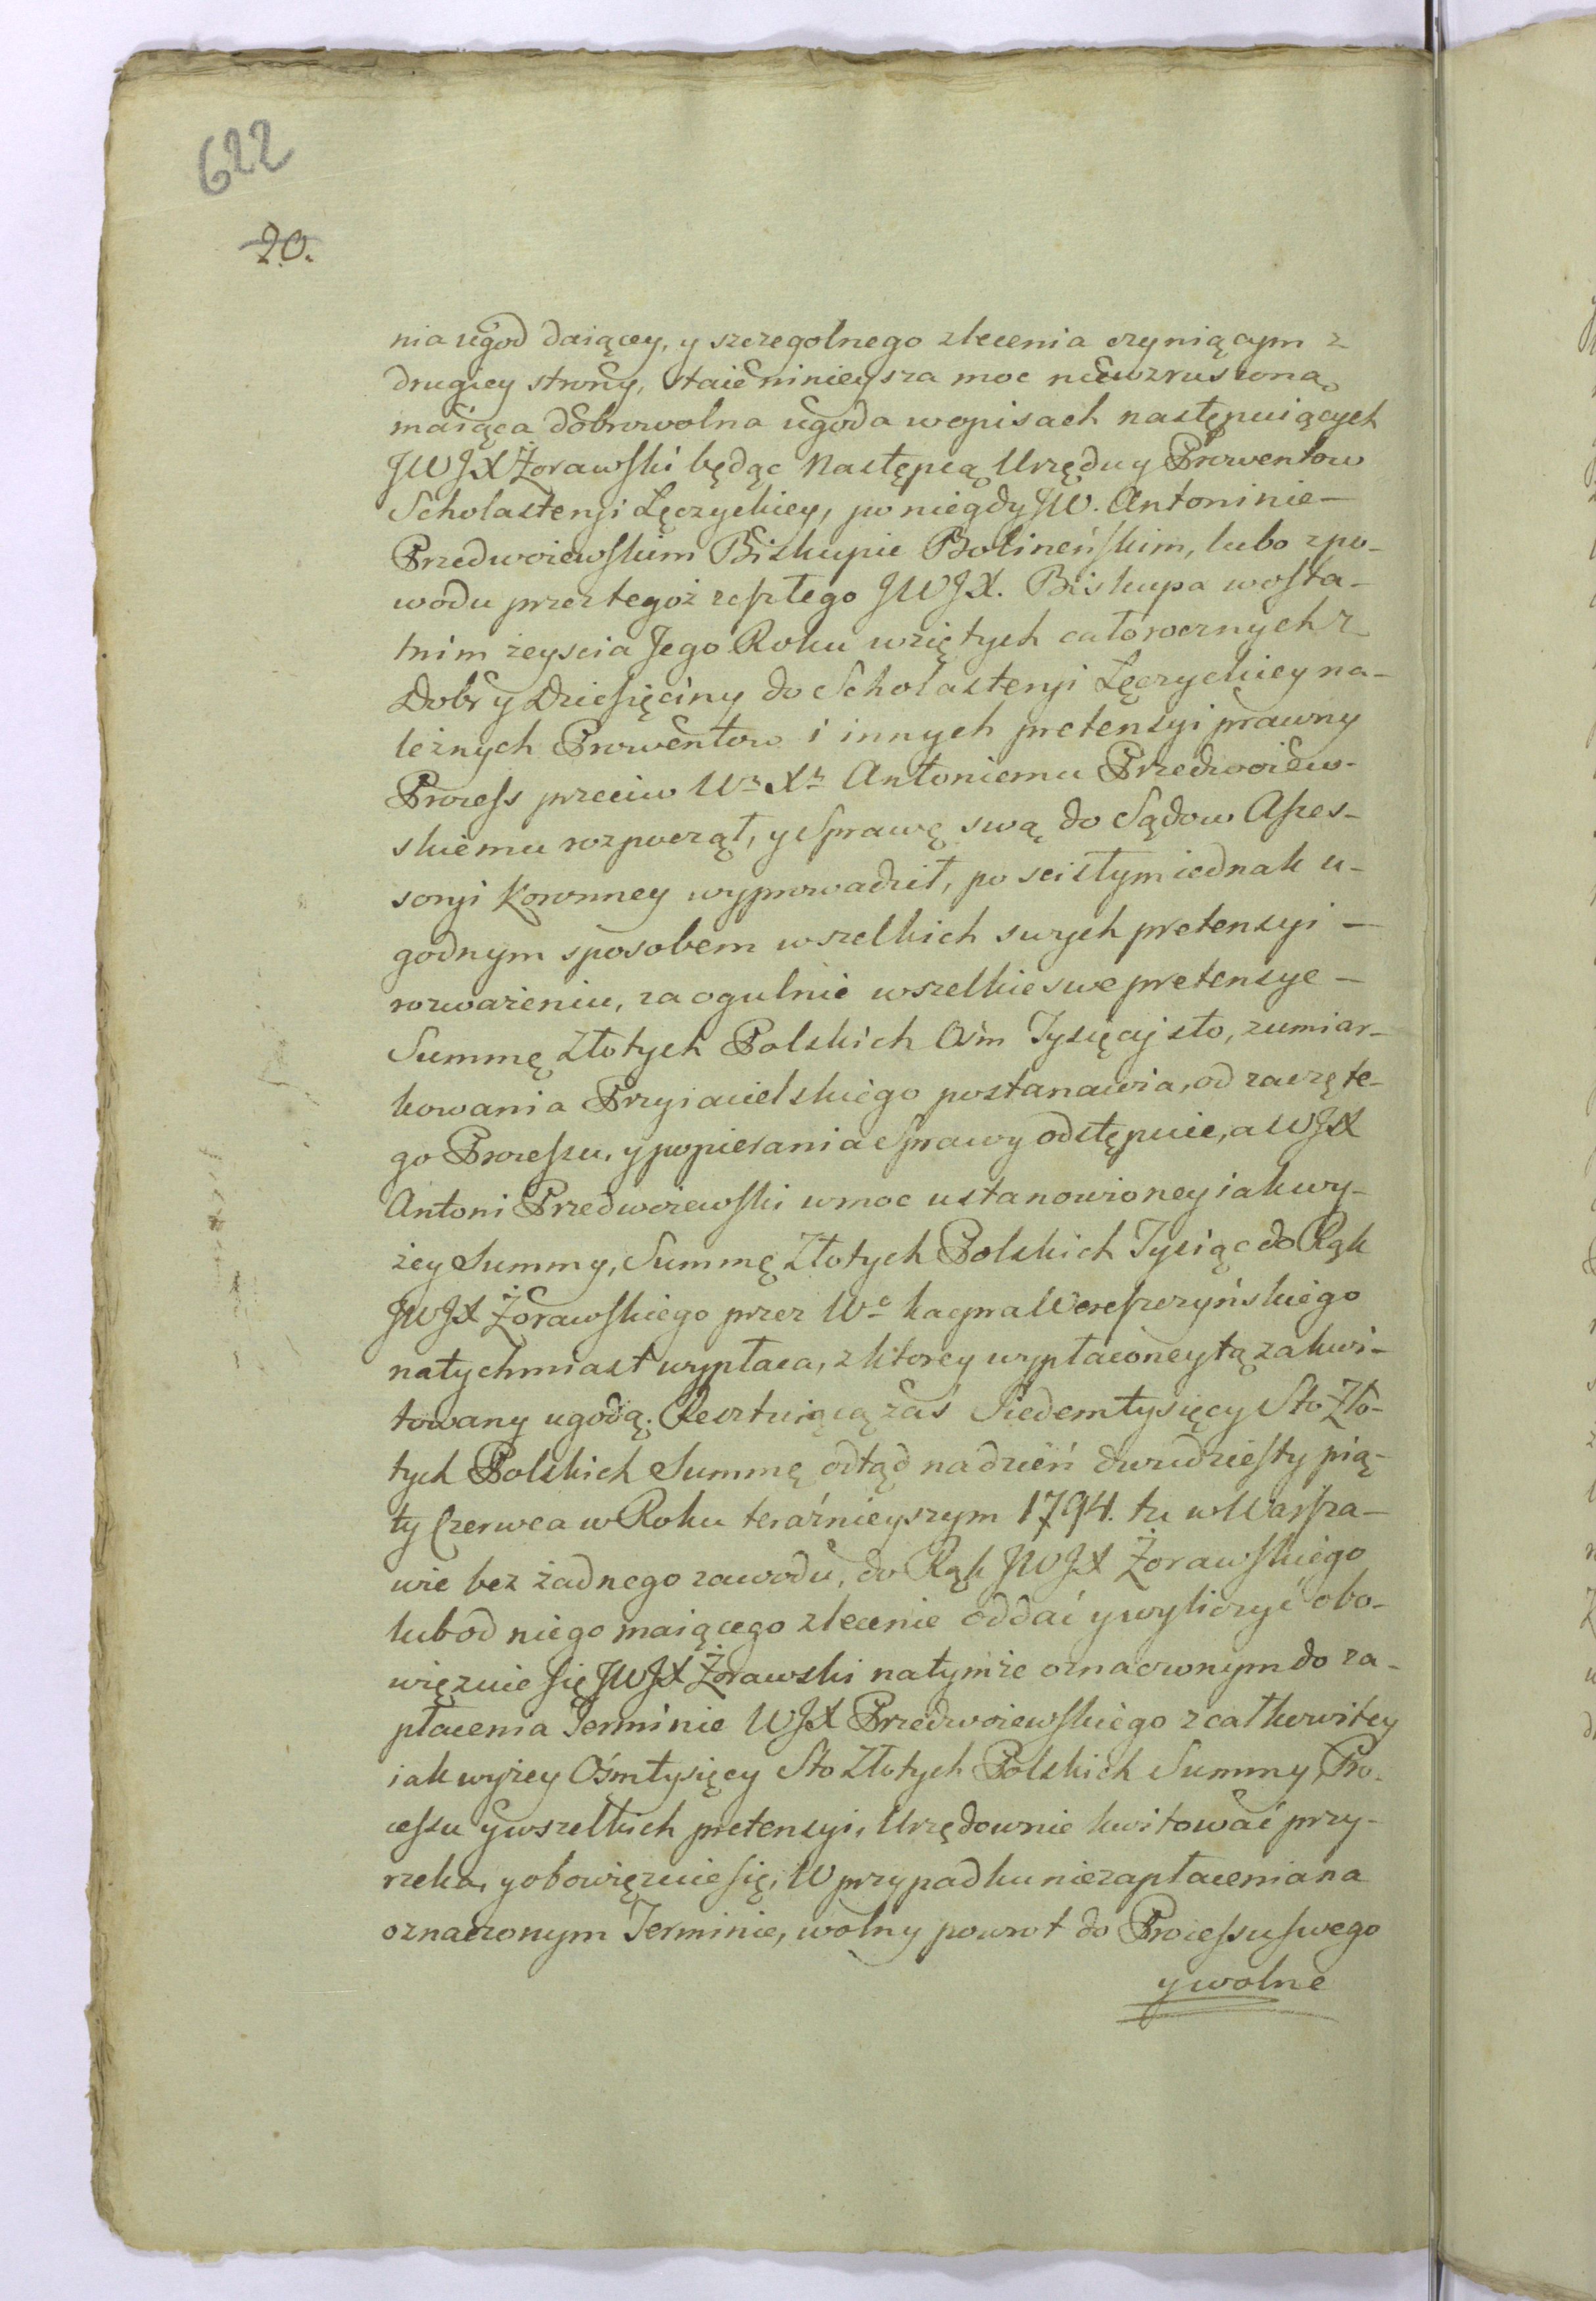 622
20.
nia ugod daiącey, y szczegolnego zlecenia czyniącym z
drugiey strony, staie ninieysza moc niewzruszoną
maiąca dobrowolna ugoda w opisach następuiących
JWJX Żorawski będąc Następcą Urzędu y Prowentow
Scholasteryi Łęczyckiey, po niegdy JW. Antoninie
Przedwoiewskim Biskupie Bolineńskim, lubo z po-
wodu przez tegoż zeszłego JWJX. Biskupa w osta-
tnim zeyscia Jego Roku wziętych całorocznych z
Dobr y Dziesięciny do Scholasteryi Łęczyckiey na-
leżnych Prowentow i innych pretensyi prawny
Process przeciw Wu Xu Antoniemu Przedwoiew-
skiemu rozpoczął, y Sprawę swą do Sądow Asses-
soryi Koronney wyprowadził, po scisłym iednak u-
godnym sposobem wszelkich swych pretensyi —
rozważeniu, za ogulnie wszelkie swe pretensye —
Summę Złotych Polskich Ośm Tysięcy sto, z umiar-
kowania Przyiacielskiego postanawia, od zaczęte-
go Processu, y popierania Sprawy odstępuie, a WJX
Antoni Przedwoiewski w moc ustanowioney iak wy-
żey Summy, Summę Złotych Polskich Tysiąc do Rąk
JWJX Żorawskiego przez Wo Kacpra Wereszczyńskiego
natychmiast wypłaca, z ktorey wypłaconey tą zakwi-
towany ugodą. Resztuiącą zaś Siedemtysięcy Sto Zło-
tych Polskich Summę odtąd na dzień dwudziesty pią-
ty Czerwca w Roku teraźnieyszym 1794. tu w Warsza-
wie bez żadnego zawodu, do Rąk JWJX Żorawskiego
lub od niego maiącego zlecenie oddać y wyliczyć obo-
więzuie się JWJX Żorawski na tymże oznaczonym do za-
płacenia Terminie WJX Przedwoiewskiego z całkowitey
iak wyżey Ośmtysięcy Sto Złotych Polskich Summy, Pro-
cessu y wszelkich pretensyi, Urzędownie kwitować przy-
rzeka, y obowięzuie się, W przypadku niezapłacenia na
oznaczonym Terminie, wolny powrot do Processu swego
y wolne